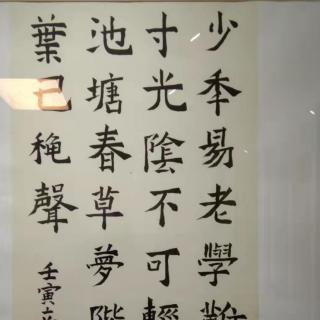 少秊易老學
寸光陰不可輕
池塘春草夢階
葉已穐聲
壬寅